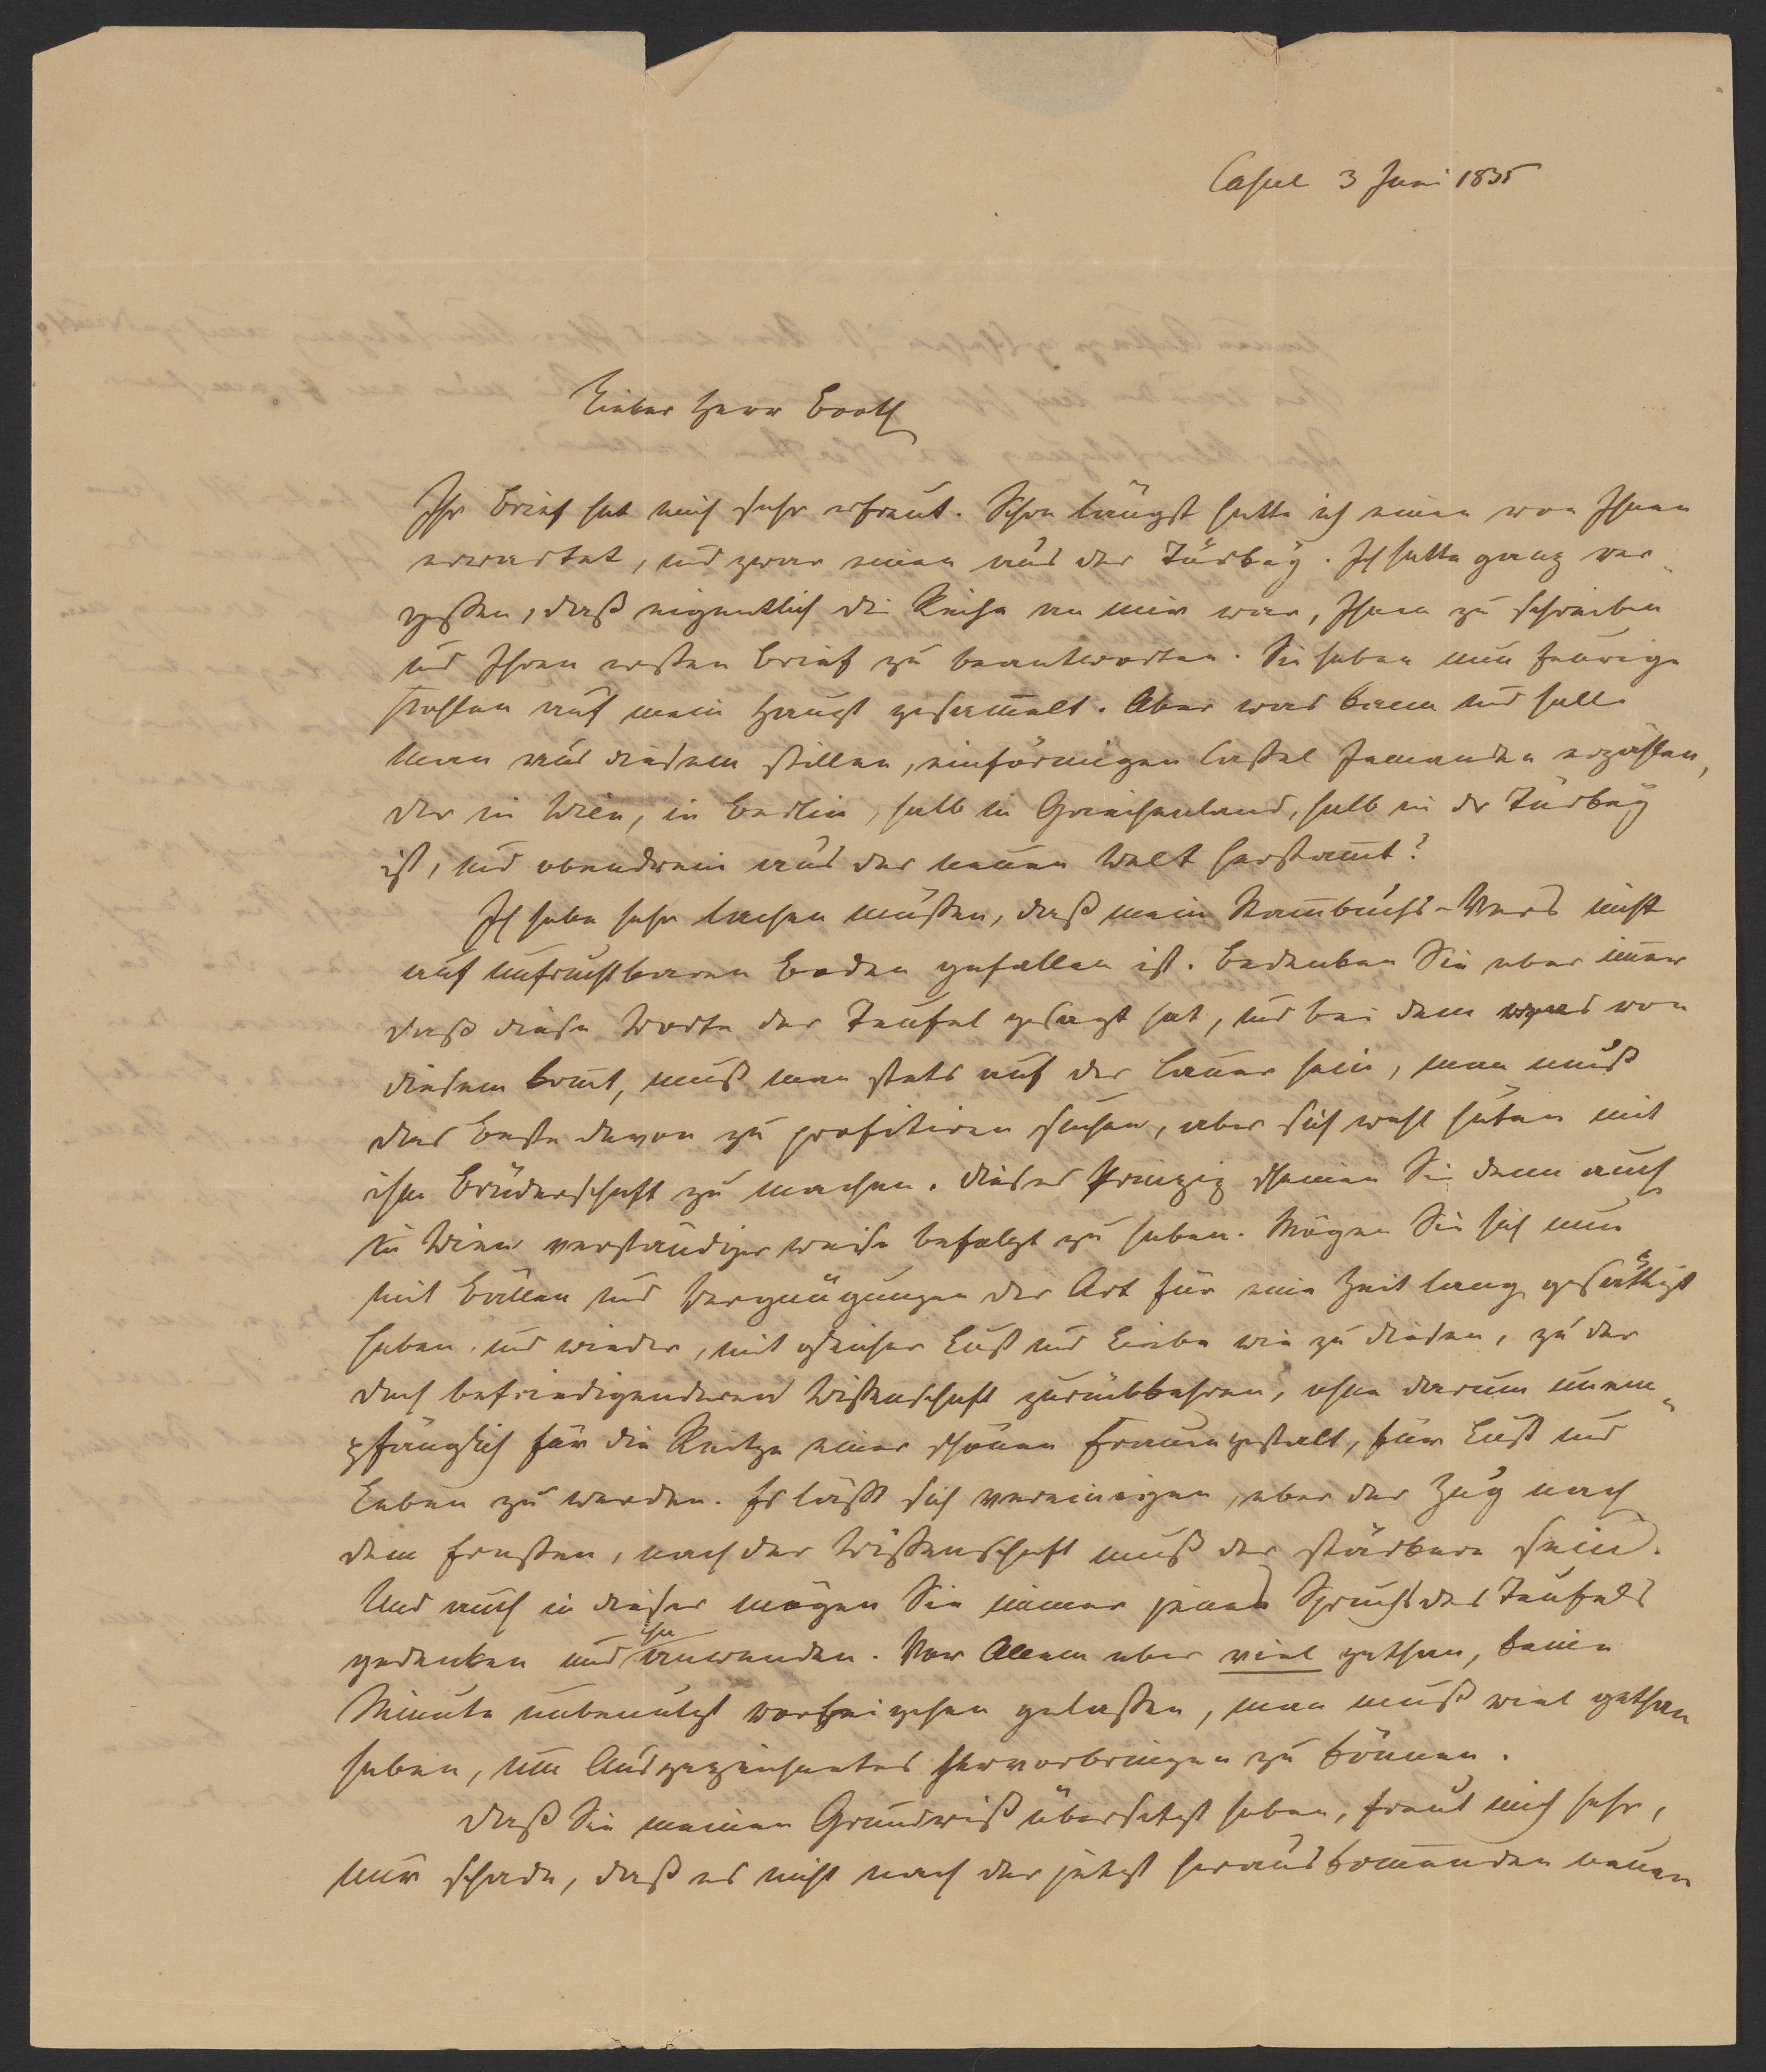 Cassel 3 Juni 1835
Lieber Herr Booth
Ihr Brief hat mich sehr erfreut. Schon längst hatte ich einen von Ihnen
erwartet, und zwar einen aus der Türkey. Ich hatte ganz ver-
gessen, daß eigentlich die Reihe an mir war, Ihnen zu schreiben
und Ihren ersten Brief zu beantworten. Sie haben nun feurige
Kohlen auf mein Haupt gesam̄elt. Aber was kann und soll
man aus diesem stillen, einförmigen Cassel Jemanden erzählen,
der in Wien, in Berlin, halb in Griechenland, halb in der Türkey
ist, und obendrein aus der neuen Welt herstam̄t?
Ich habe sehr lachen müssen, daß mein Stam̄buchs-Vers nicht
auf unfruchtbaren Boden gefallen ist. Bedenken Sie aber im̄er
daß diese Worte der Teufel gesagt hat, und bei dem was von
diesem kom̄t, muß man stets auf der Lauer sein, man muß
das Beste davon zu profitiren suchen, aber sich wohl hüten mit
ihm Brüderschaft zu machen. Dieses Prinzip scheinen Sie denn auch
in Wien verständiger weise befolgt zu haben. Mögen Sie sich nun
mit Bällen und Vergnügungen der Art für eine Zeit lang gesättigt
haben, und wieder, mit gleicher Lust und Liebe wie zu diesen, zu der
doch befriedigenderen Wissenschaft zurückkehren, ohne darum unem-
pfänglich für die Reitze einer schönen Frauengestalt, für Lust und
Leben zu werden. Es läßt sich vereinigen, aber der Zug nach
dem Ernsten, nach der Wissenschaft muß der stärkere sein.
Und auch in dieser mögen Sie immer jenes Spruchs des Teufels
gedenken und ihn anwenden. Vor Allem aber viel gethan, keine
Minute unbenutzt vorbeigehen gelassen, man muß viel gethan
haben, um Ausgezeichnetes hervorbringen zu können.
Daß Sie meinen Grundriß übersetzt haben, freut mich sehr,
nur schade, daß es nicht nach der jetzt herauskom̄enden neuen